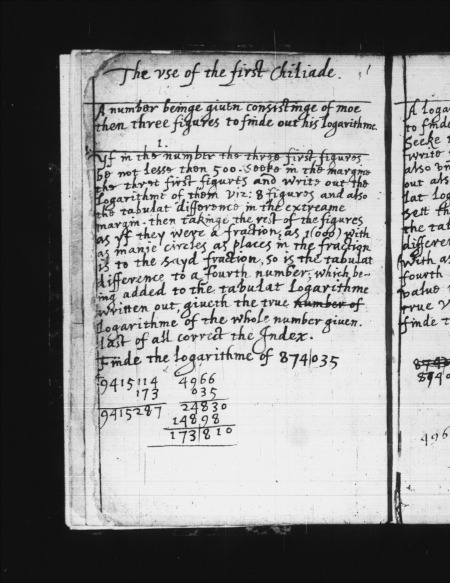 The vse of the first Chiliade.
A number beinge giuen consistinge of moe
then three figures to finde out his logarithme.
1.
Yf in the number the three first figures
be not lesse then 500. Seeke in the margine
the three first figures and write out the
logarithme of them viz: 8 figures and also
the tabulat difference in the extreame
margin. then takinge the rest of the figures
as yf they were a fraction; as 1(000) with
as manie circles as places in the fraction
is to the sayd fraction, so is the tabulat
difference to a fourth number; which be-
ing added to the tabulat logarithme
written out, giueth the true number of
logarithme of the whole number giuen.
last of all correct the Index.
Finde the logarithme of 874|035
9415114 4966
173 035
9415287 24830
14898
173|810
A loga
to finde
Seeke
write
also
out
lat log
the tab
differen
with as
fourth
value
true
finde t
8740
496